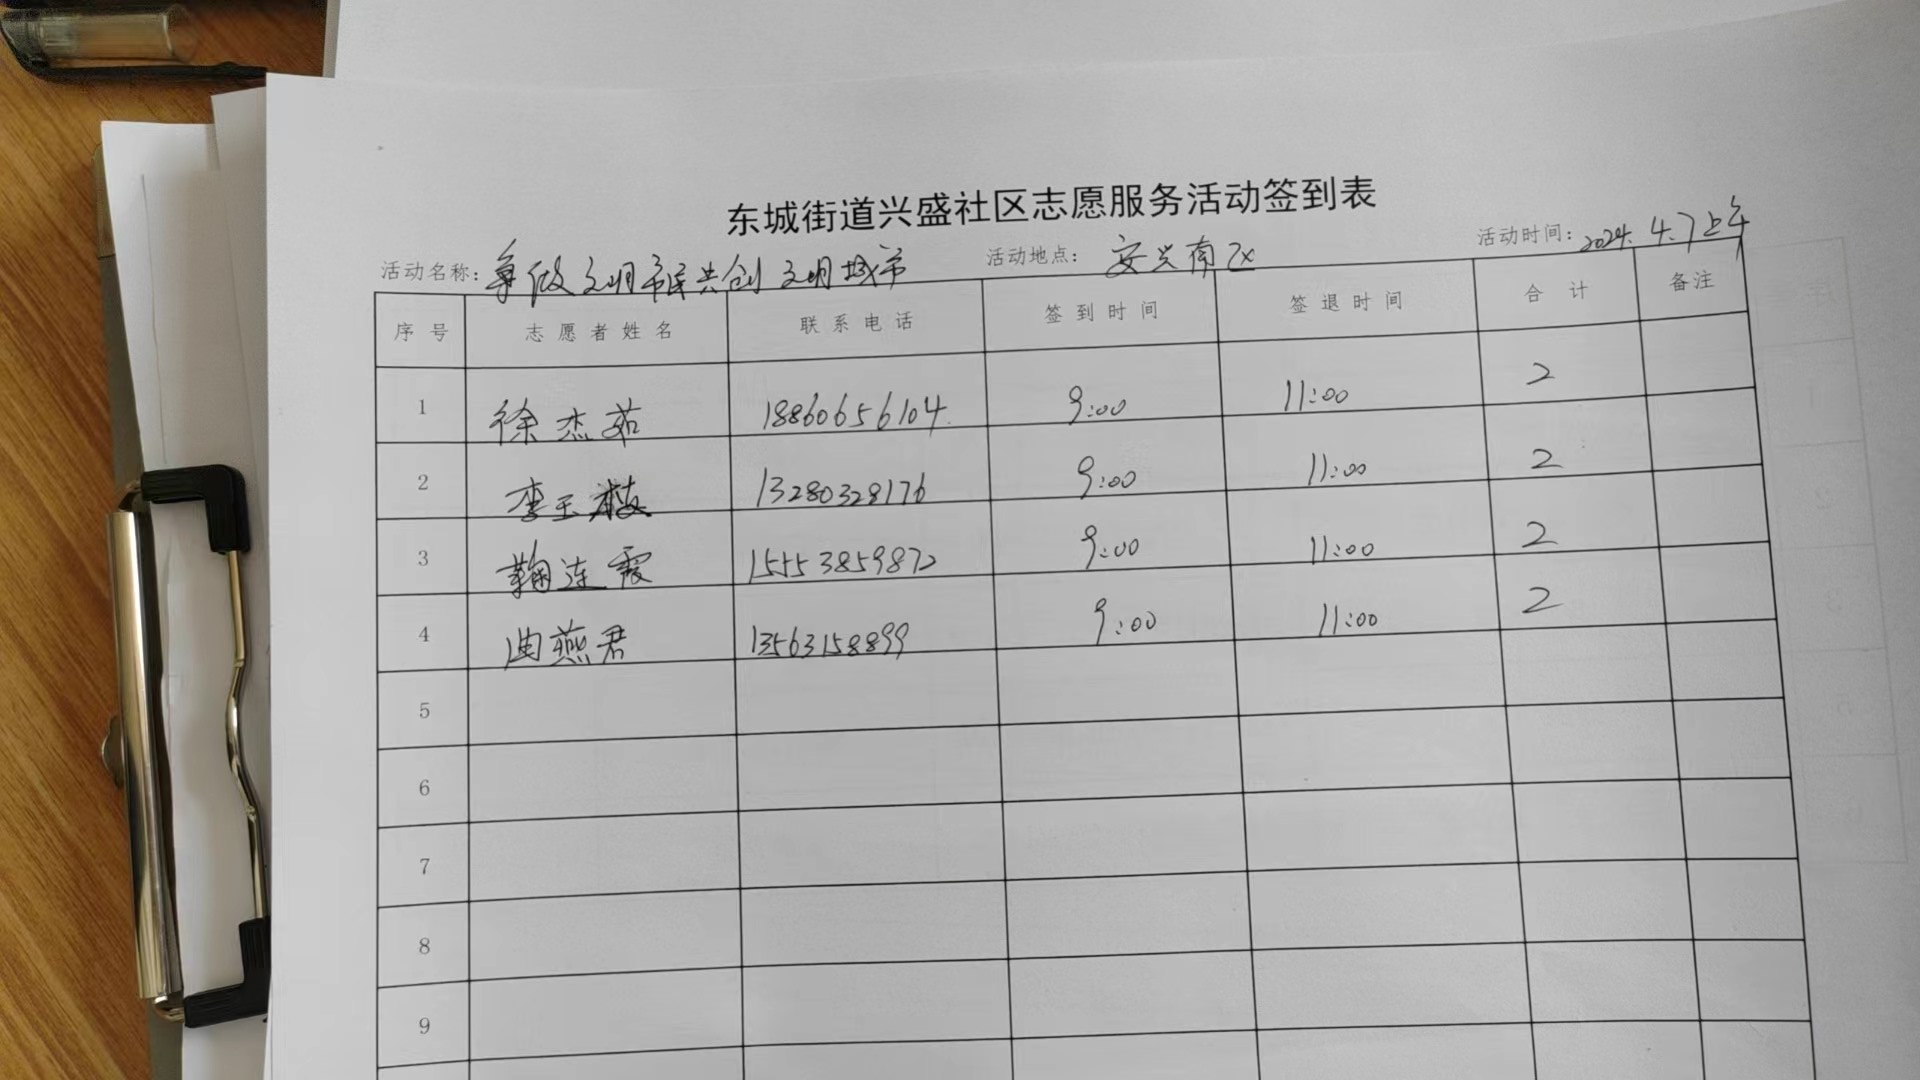 东城街道兴盛社区志愿服务活动签到表
活动名称：争做文明市民共创文明城市 活动地点：安兴南区 活动时间：2024.4.7上午
序号 志愿者姓名 联系电话 签到时间 签退时间 合计 备注
1 徐杰茹 18860656104 9:00 11:00 2
2 李玉枝 13280328176 9:00 11:00 2
3 鞠连霞 15553859872 9:00 11:00 2
4 曲燕君 13563158899 9:00 11:00 2
5
6
7
8
9